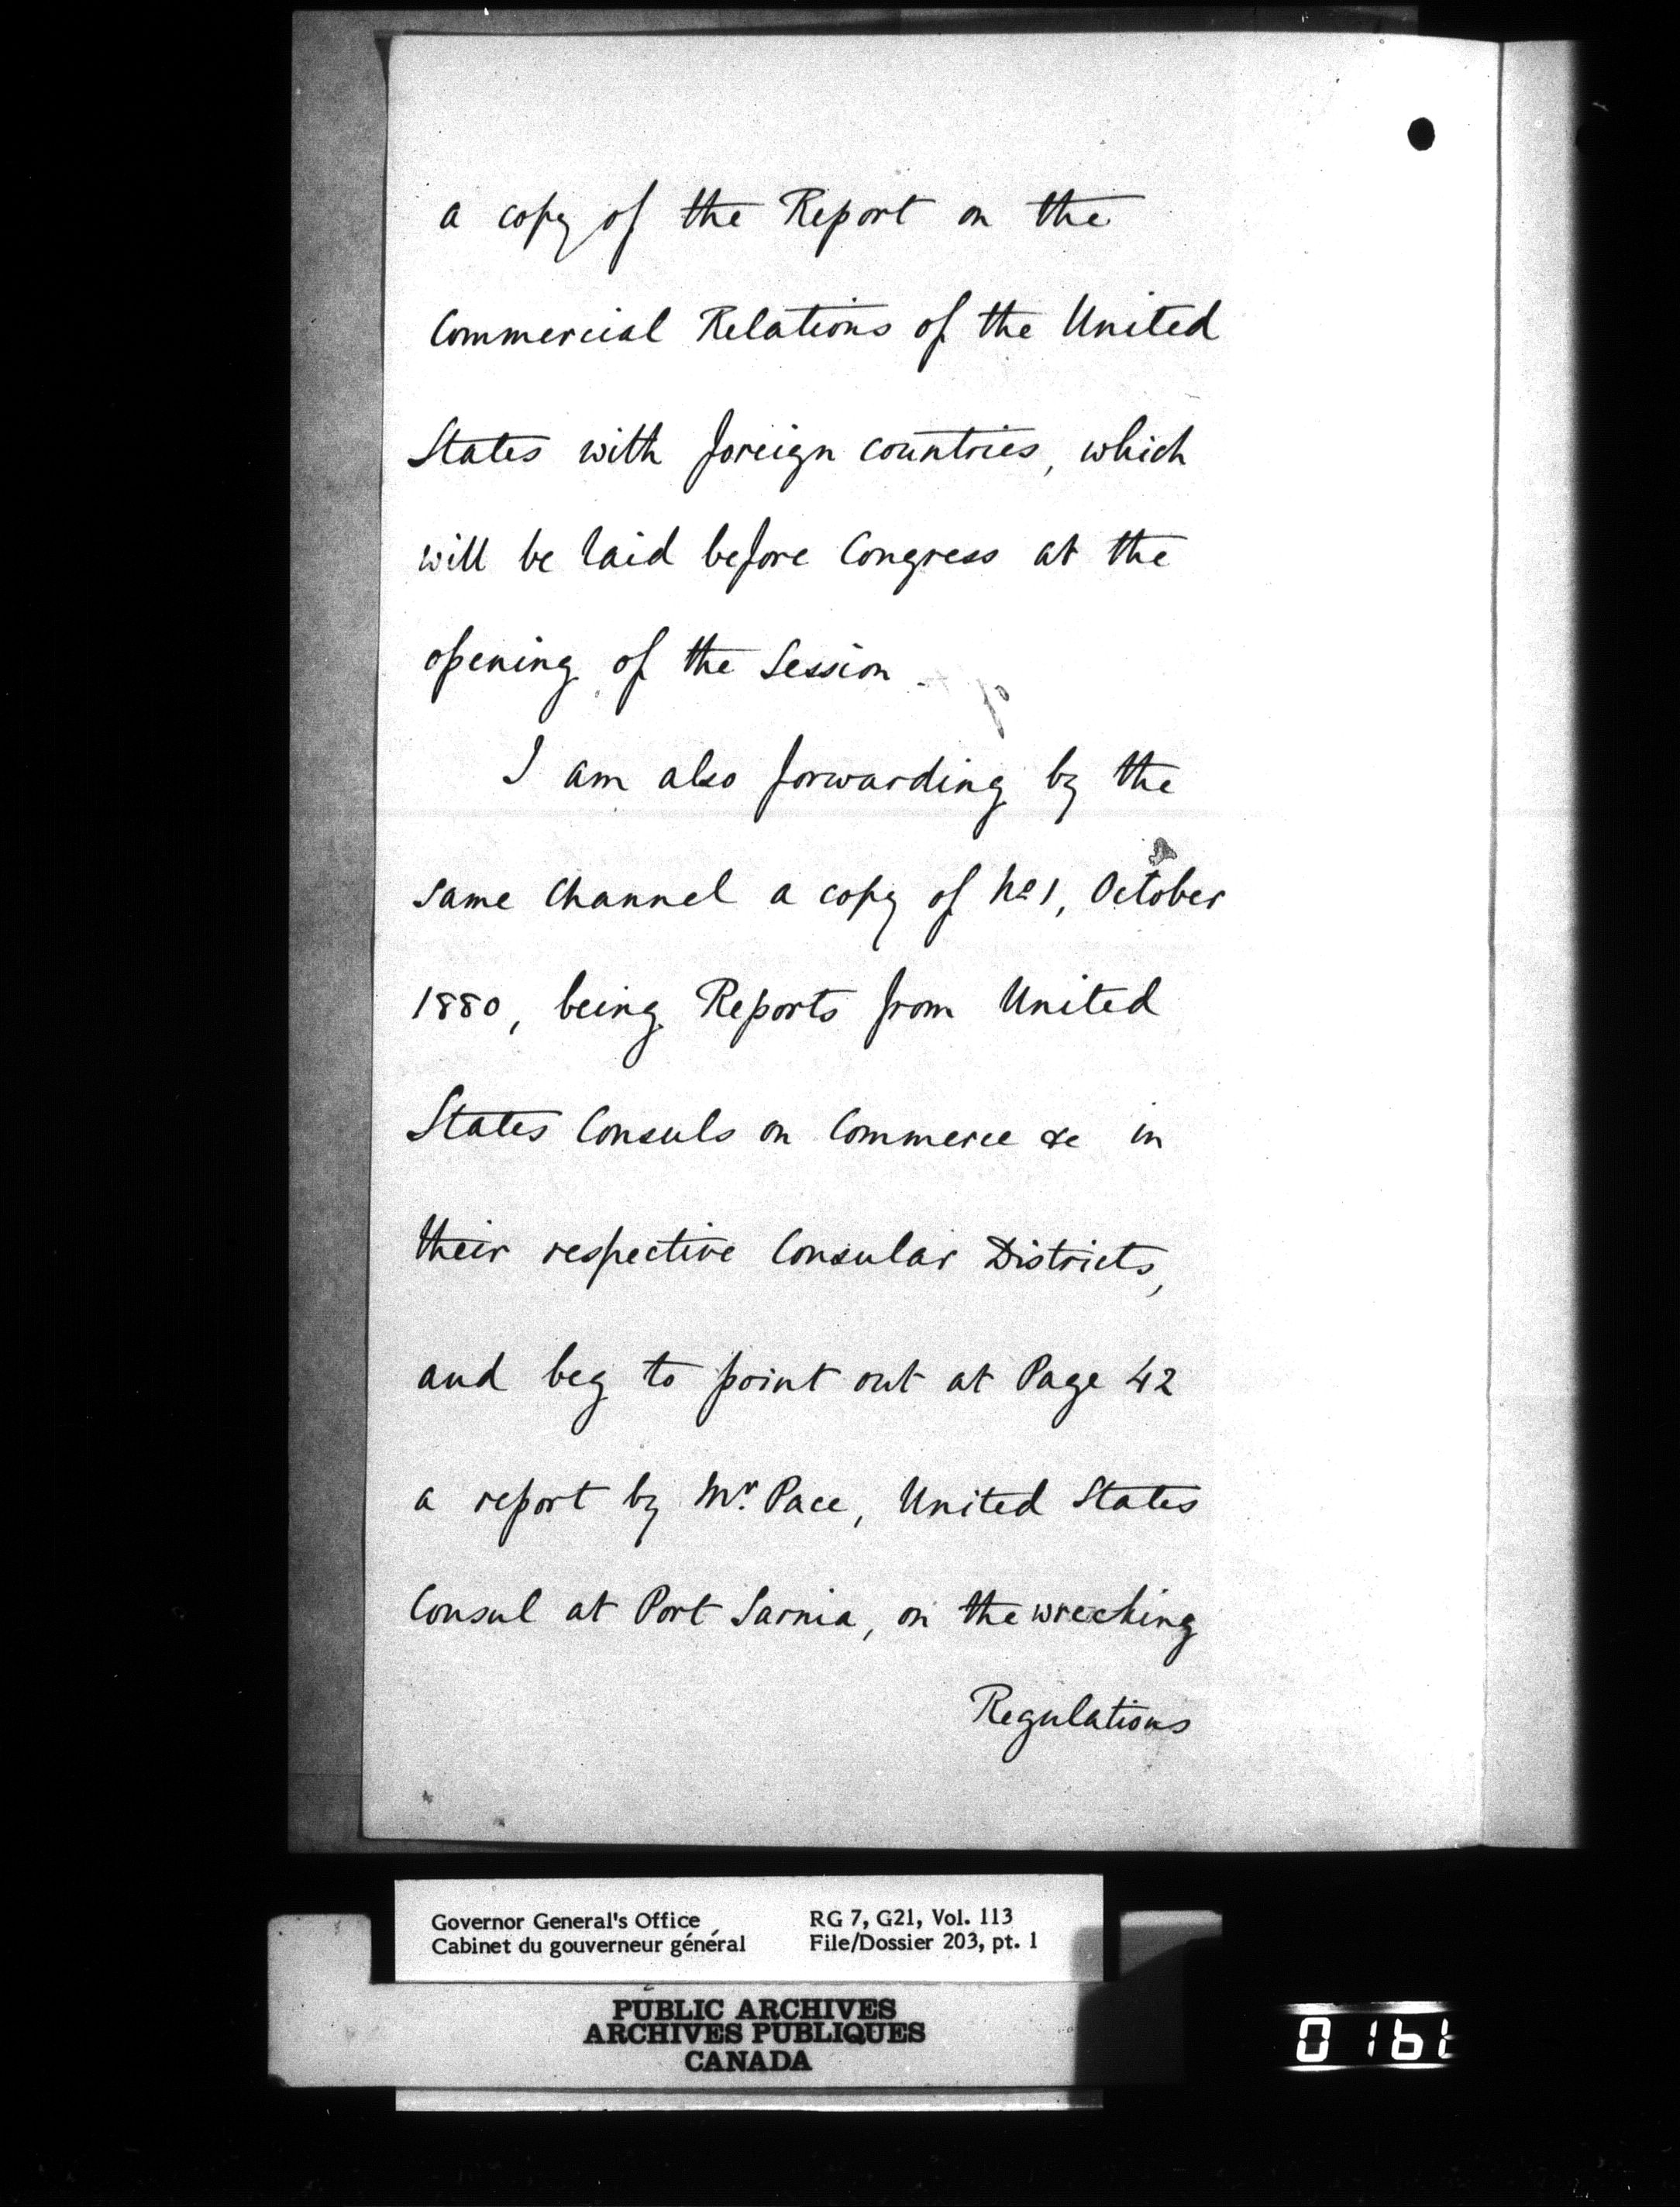 a copy of the Report on the
Commercial Relations of the United
States with foreign countries, which
will be laid before Congress at the
opening of the Session.
I am also forwarding by the
same Channel a copy of No 1, October
1880, being Reports from United
States Consuls on Commerce &c in
their respective Consular Districts,
and beg to point out at Page 42
a report by Mr. Pace, United States
Consul at Port Sarnia, on the wrecking
Regulations
Governor General's Office RG 7, G21, Vol. 113
Cabinet du gouverneur général File/Dossier 203, pt. 1
PUBLIC ARCHIVES
ARCHIVES PUBLIQUES
CANADA
0161